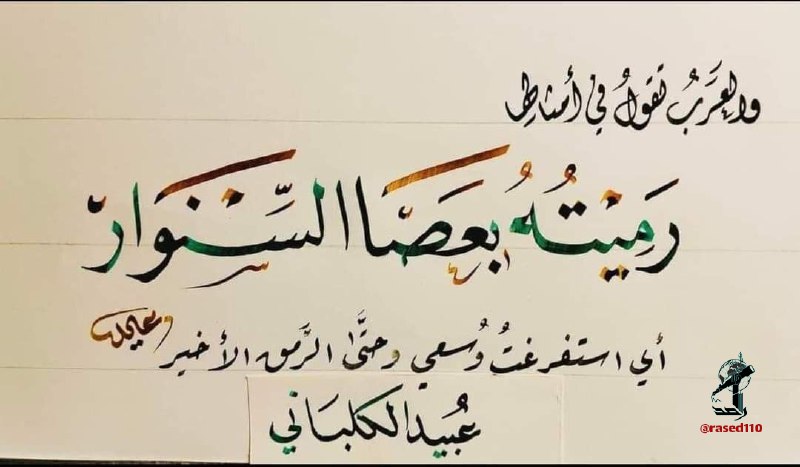 والعَرَبُ تقولُ في أمثالها
رَمَيْتُهُ بعَصَا السِّنْوَارْ
أي استفرغتُ وُسعي وحتَّى الرَّمق الأخير
عُبيد الكلبَاني
@rased110